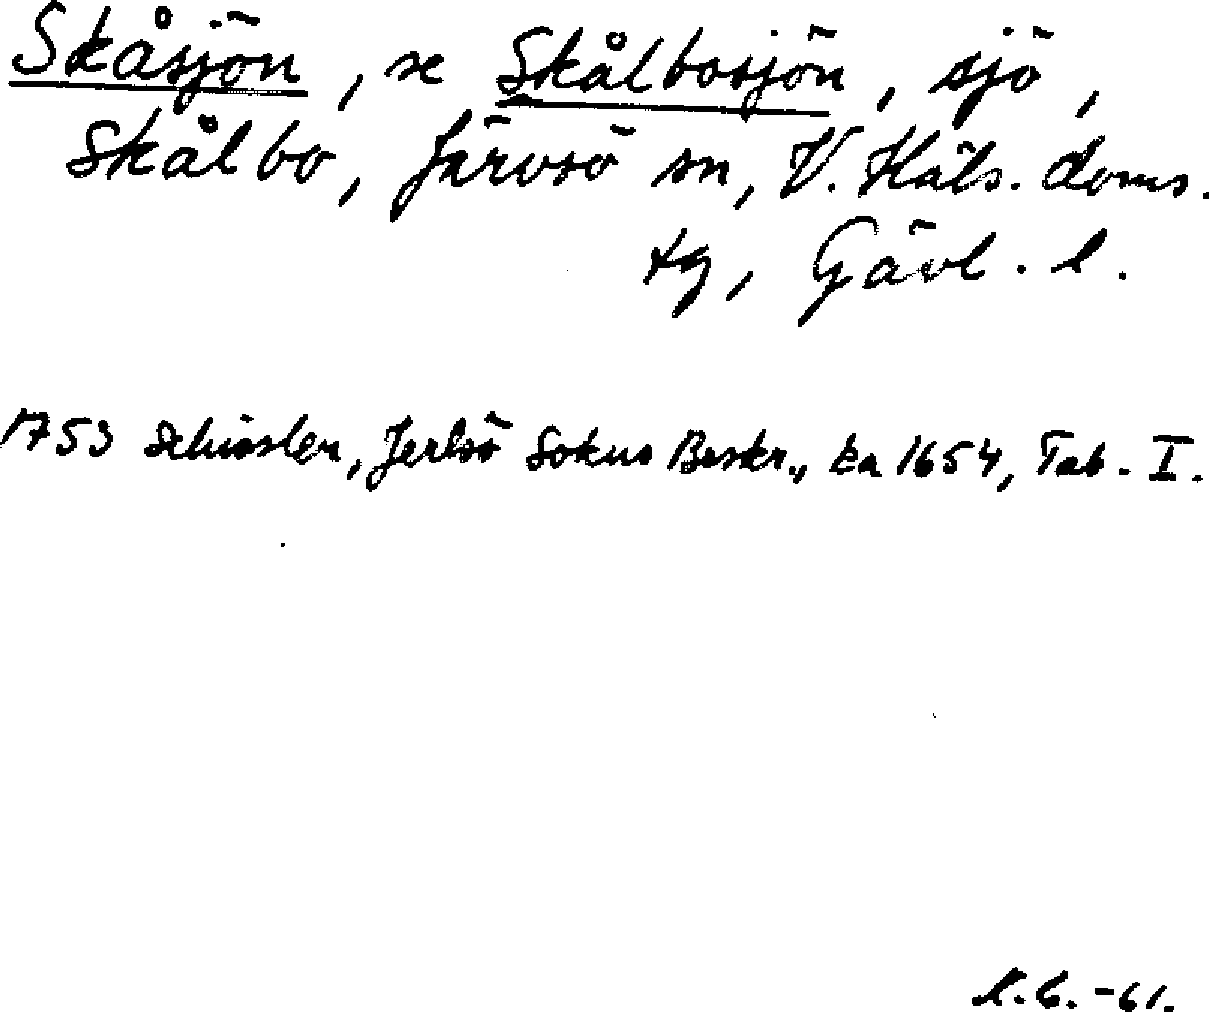 Skåsjön, se Skålbosjön, sjö,
Skålbo, Järvsö sn, V. Häls. doms.
tg, Gävl. l.
1753 Schissler, Jerlsö Sokns Beskr., ka 1654, Tab. I.
-61.